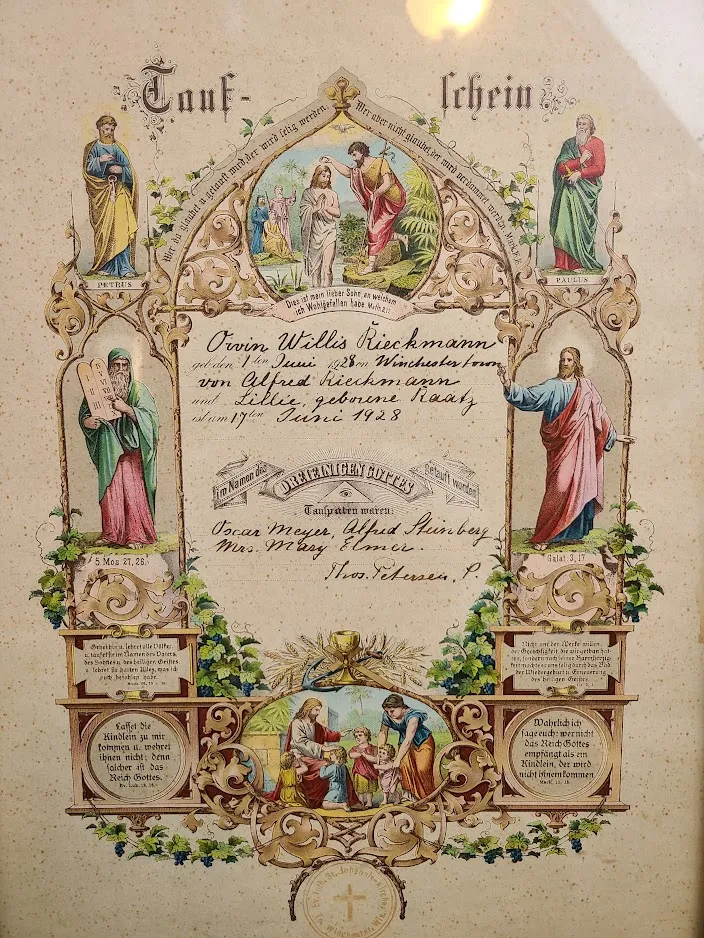 Tauf- schein
Wer da glaubet u. getauft wird, der wird selig werden; Wer aber nicht glaubet, der wird verdammet werden.
PETRUS
PAULUS
Dies ist mein lieber Sohn, an welchem
ich Wohlgefallen habe.
Orvin Willis Rieckmann
geb. den 1ten Juni 1928 in Winchester town
von Alfred Rieckmann
und Lillie, geborene Raatz
ist am 17ten Juni 1928
Im Namen des DREIEINIGEN GOTTES Getauft worden
Taufpaten waren:
Oscar Meyer, Alfred Steinberg
Mrs. Mary Elmer.
Thos. Petersen, P.
5. Mos. 27, 26.
Galat. 3, 17
Gehet hin u. lehret alle Völker,
u. taufet sie im Namen des Vaters,
des Sohnes u. des heiligen Geistes.
u. lehret sie halten Alles, was ich
euch befohlen habe.
Nicht um der Werke willen
der Gerechtigkeit, die wir gethan hat-
ten, sondern nach seiner Barmherzig-
keit machte er uns selig durch das Bad
der Wiedergeburt u. Erneuerung
des heiligen Geistes.
Lasset die
Kindlein zu mir
kommen u. wehret
ihnen nicht; denn
solcher ist das
Reich Gottes.
Ev. Luk. 18, 16.
Wahrlich ich
sage euch: wer nicht
das Reich Gottes
empfängt als ein
Kindlein, der wird
nicht hineinkommen
Mark. 10, 15.